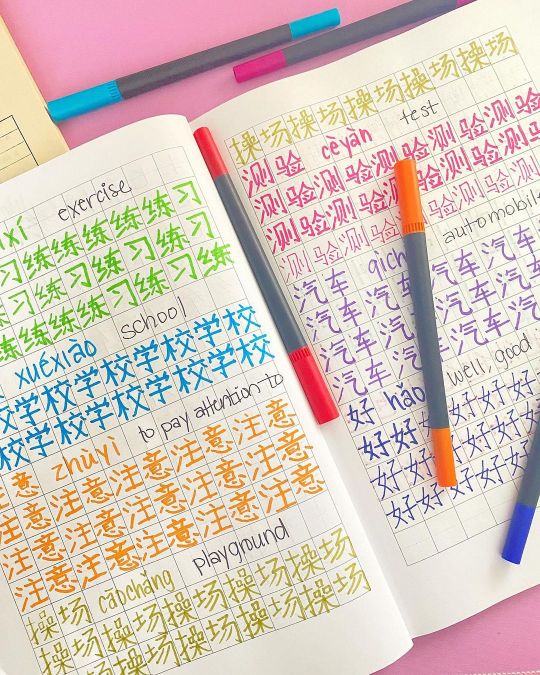 xí exercise
习练练练练练习
练习练习练习
练练练练练习练
xuéxiào school
学校学校学校学校
学校学校学校学校
意 zhùyì to pay attention to
注意注意注意注意
注意注意注意注意
注意注意注意注意
操场 cāochǎng playground
操场操场操场操场
操场操场操场操场
操场操场操场操场场
测验 cèyàn test
测验测验测验测验
测验测验测验测验
测验测验测验
汽车 qìch automobile
汽车汽车汽车
汽车汽车汽车
汽车汽车汽车
好 hǎo well, good
好好好好好好
好好好好好
好好好好好